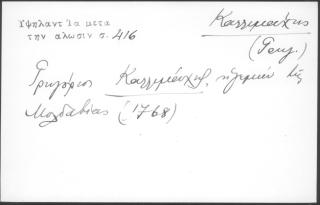 Ὑψηλαντ Ἰα μετα
την αλωσιν σ. 416
Καλλιμάχης
(Γρηγ.)
Γρηγόριος Καλλιμάχης, ηγεμών της
Μολδαβίας (1768)